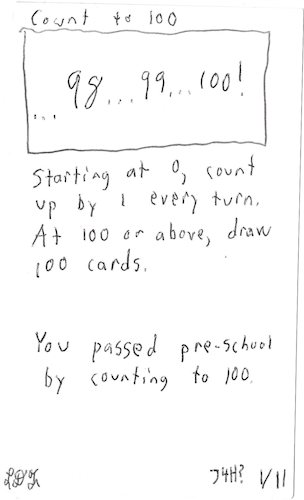 Count to 100
... 98 ... 99 ... 100!
Starting at 0, count
up by 1 every turn.
At 100 or above, draw
100 cards.
You passed pre-school
by counting to 100.
J4H? 1/11